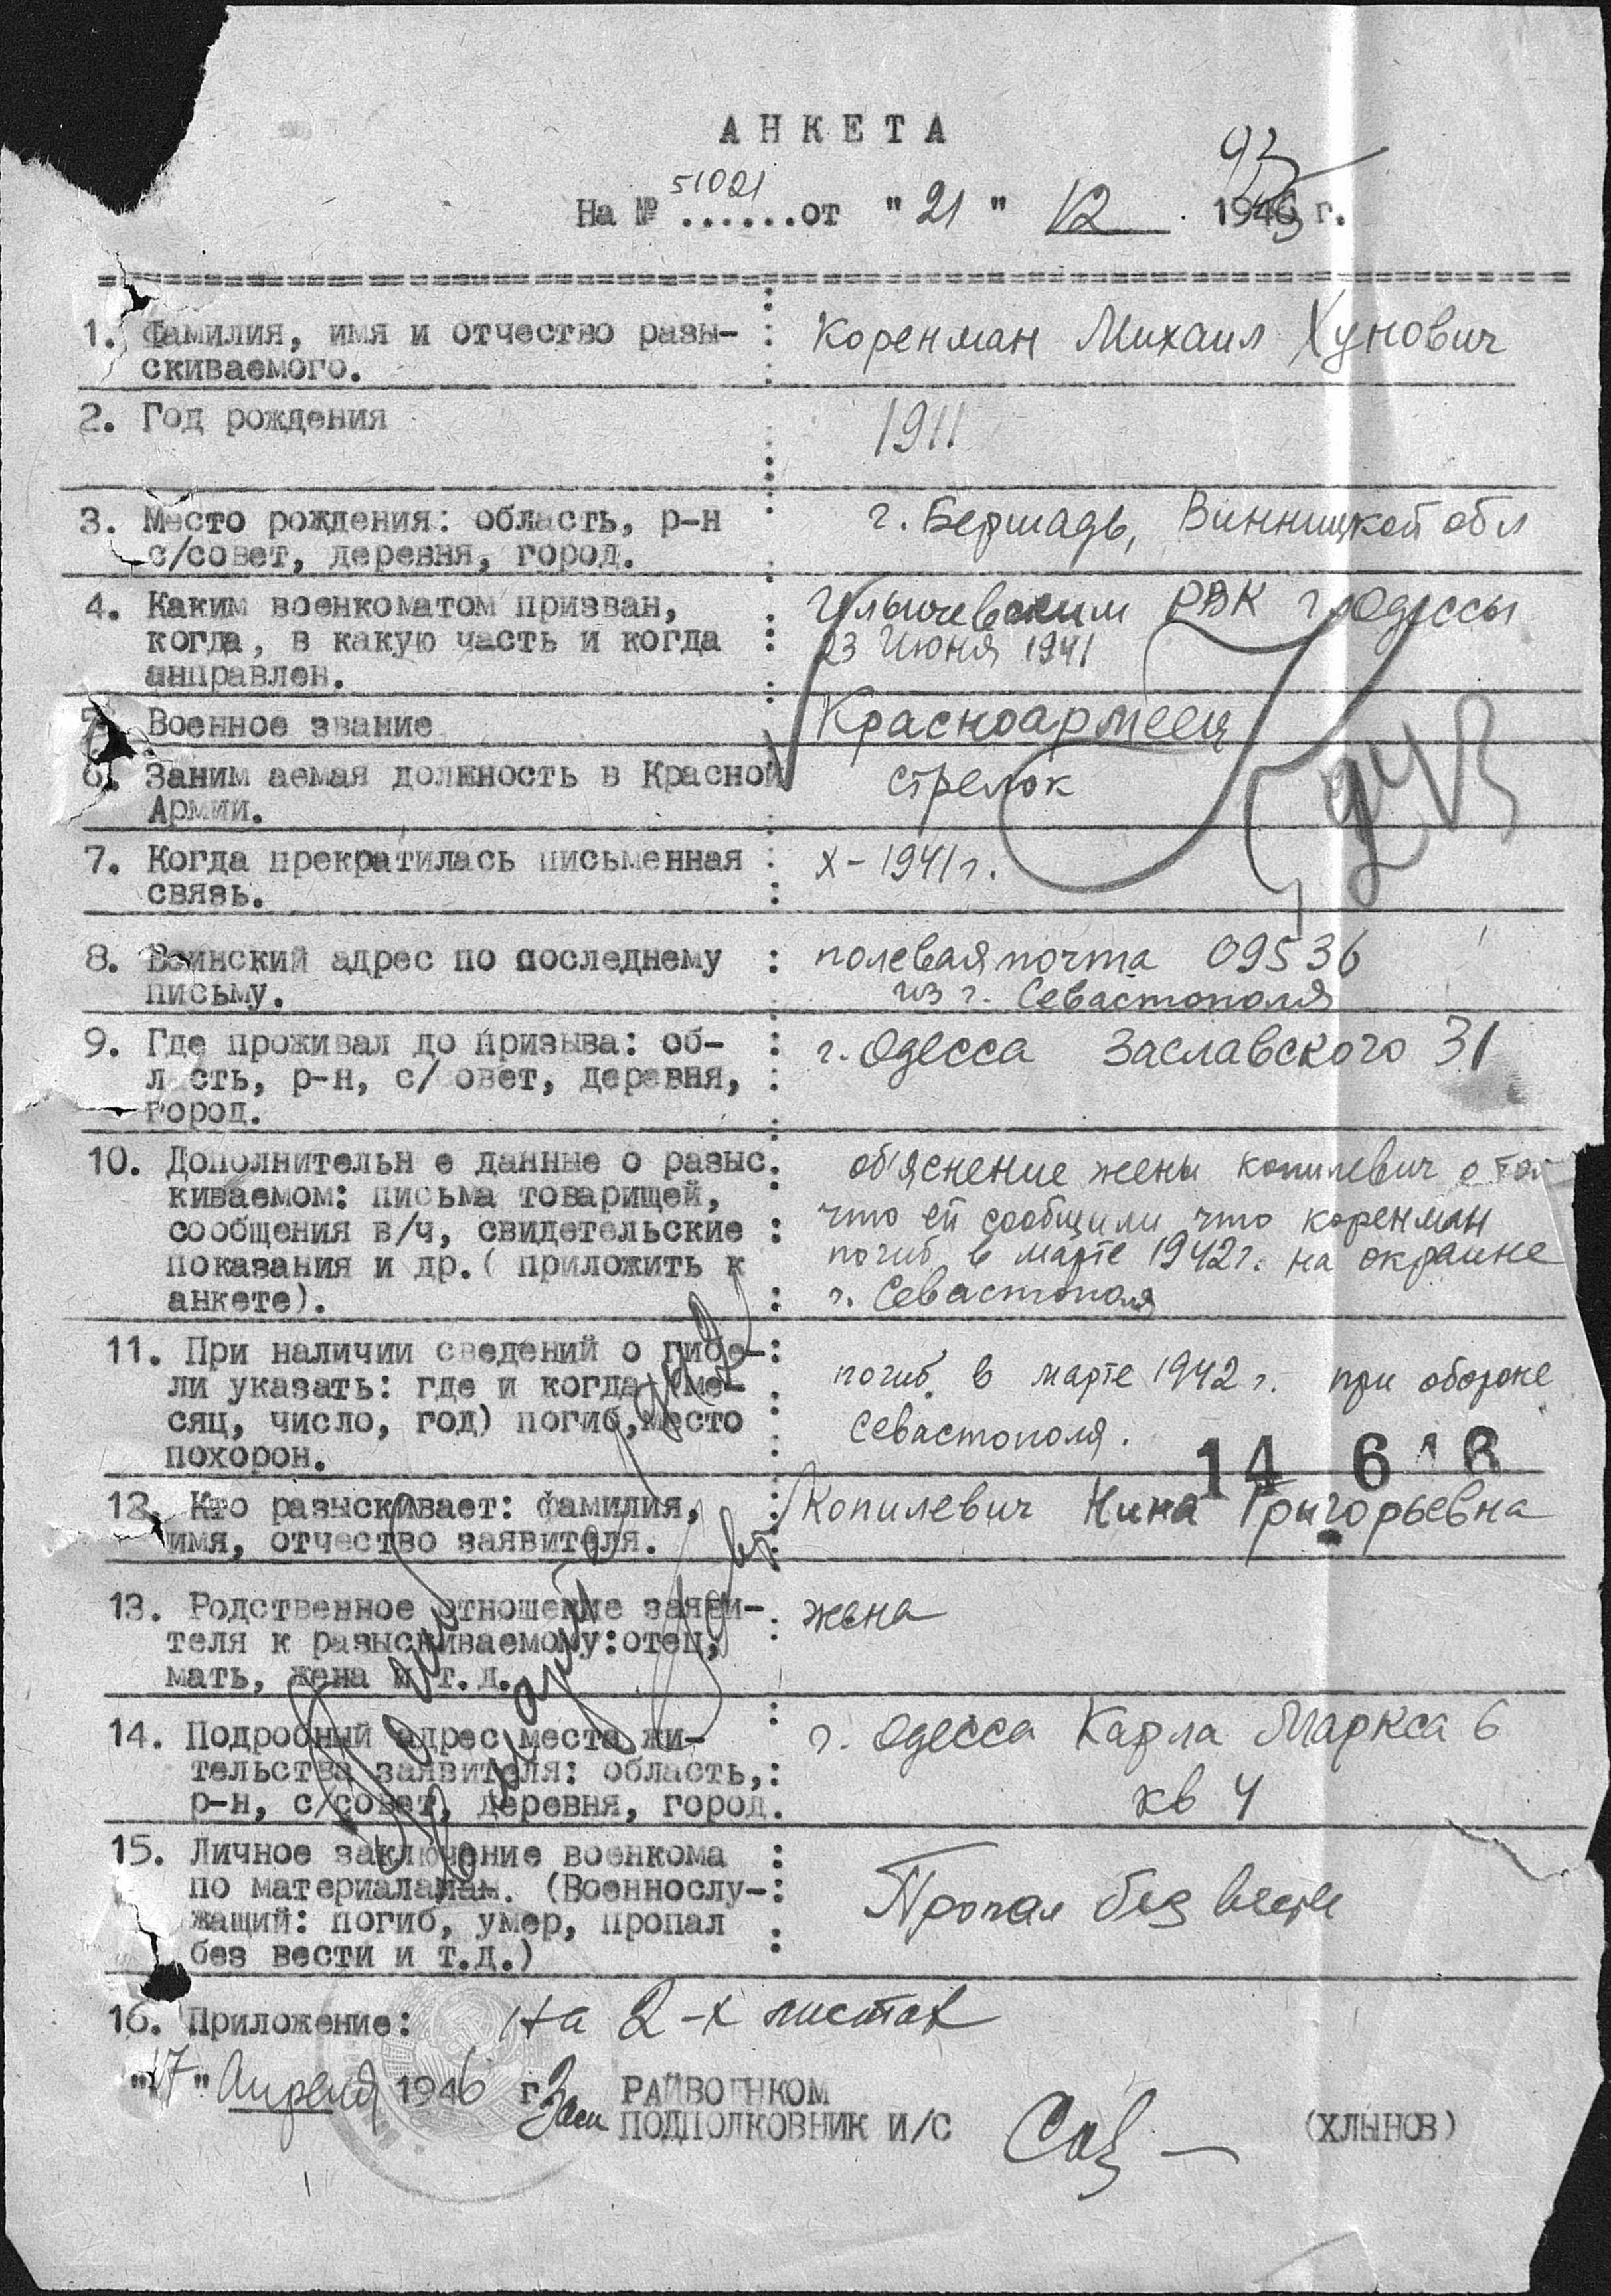 АНКЕТА
93
51021
На № ......от "21" 12 1945 г.
1. Фамилия, имя и отчество разы- : Коренман Михаил Хунович
скиваемого.
2. Год рождения 1911
3. Место рождения: область, р-н г. Бершадь, Винницкой обл
с/совет, деревня, город.
4. Каким военкоматом призван, Ильичевским РВК г. Одессы
когда, в какую часть и когда : 23 июня 1941
анправлен.
5. Военное звание Красноармеец
6. Заним аемая должность в Красной стрелок
Армии.
7. Когда прекратилась письменная : X-1941г.
связь.
8. Воинский адрес по последнему : полевая почта 09536
письму. из г. Севастополя
9. Где проживал до призыва: об- : г. Одесса Заславского 31
л сть, р-н, с/совет, деревня, :
город.
10. Дополнительн е данные о разыс. об'яснение жены копилевич о том
киваемом: письма товарищей, что ей сообщили что коренман
сообщения в/ч, свидетельские : погиб в марте 1942г. на окраине
показания и др.( приложить к г. Севастополя
анкете). :
11. При наличии сведений о гибе-: погиб в марте 1942 г. при обороне
ли указать: где и когда (ме- Севастополя.
сяц, число, год) погиб,место :
похорон.
14 6
12. Кто разыскивает: фамилия, : Копилевич Нина Григорьевна
имя, отчество заявителя.
13. Родственное отношение заяви- жена
теля к разыскиваемому:отец,
мать, жена и т.д.
14. Подробный адрес места жи- г. Одесса Карла Маркса 6
тельства заявителя: область,: кв 4
р-н, с/совет, деревня, город.
15. Личное заключение военкома :
по материаламам. (Военнослу-: Пропал без вести
жащий: погиб, умер, пропал
без вести и т.д.)
16. Приложение: на 2-х листах
"17" Апреля 1946 г. Зам РАЙВОЕНКОМ
ПОДПОЛКОВНИК И/С (ХЛЫНОВ)